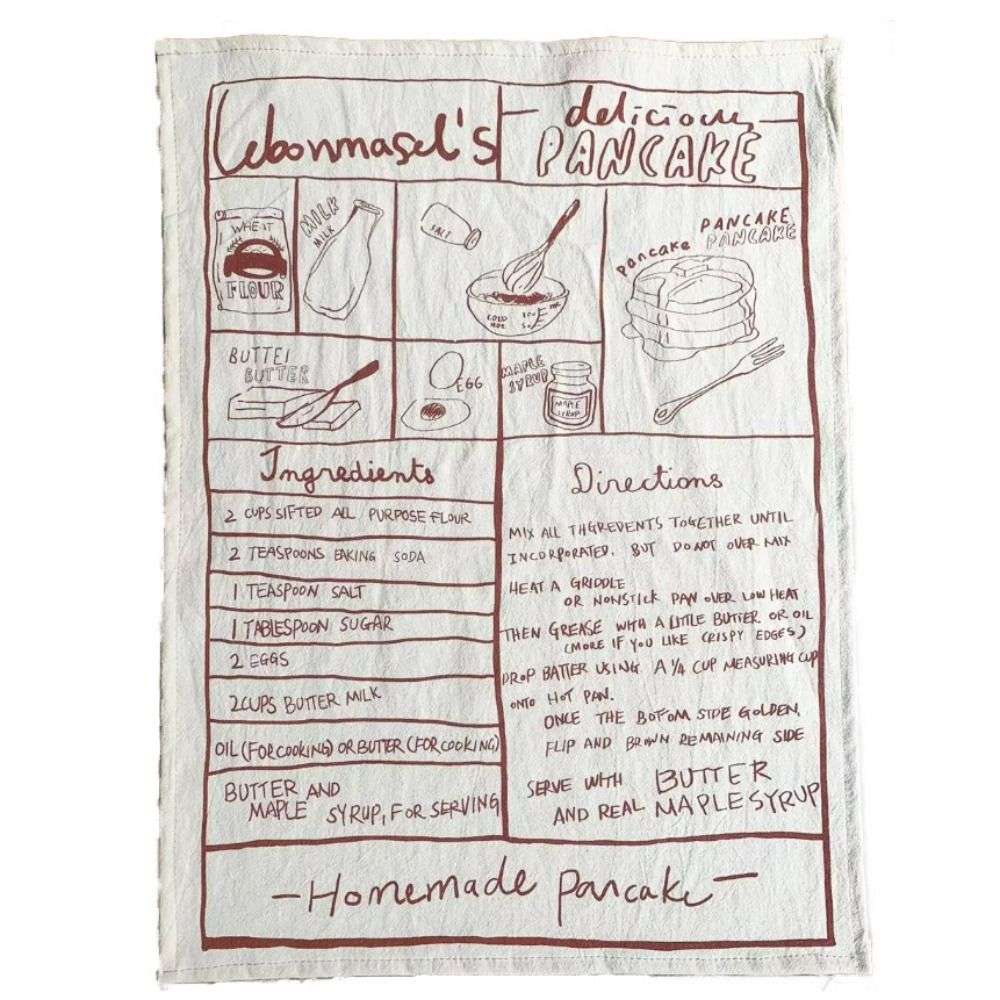 Lebonmasel's
delicious
PANCAKE
WHEAT
FLOUR
MILK
MILK
SALT
PANCAKE
PANCAKE
pancake
BUTTE
BUTTER
EGG
MAPLE
SYRUP
MAPLE
SYRUP
Ingredients
2 CUPS SIFTED ALL PURPOSE FLOUR
2 TEASPOONS BAKING SODA
1 TEASPOON SALT
1 TABLESPOON SUGAR
2 EGGS
2CUPS BUTTER MILK
OIL (FOR COOKING) OR BUTTER (FOR COOKING)
BUTTER AND
MAPLE SYRUP, FOR SERVING
Directions
MIX ALL THGREDENTS TOGETHER UNTIL
INCORPORATED. BUT DO NOT OVER MIX
HEAT A GRIDDLE
OR NONSTICK PAN OVER LOW HEAT
THEN GREASE WITH A LITTLE BUTTER OR OIL
(MORE IF YOU LIKE CRISPY EDGES)
DROP BATTER USING A 1/4 CUP MEASURING CUP
ONTO HOT PAN.
ONCE THE BOTTOM SIDE GOLDEN,
FLIP AND BROWN REMAINING SIDE
SERVE WITH BUTTER
AND REAL MAPLE SYRUP
- Homemade pancake -